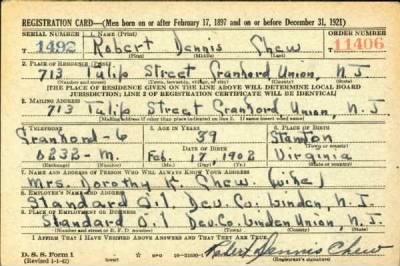 REGISTRATION CARD—(Men born on or after February 17, 1897 and on or before December 31, 1921)
SERIAL NUMBER 1. NAME (Print) ORDER NUMBER
T 1492 Robert Dennis Chew 11406
(First) (Middle) (Last)
2. PLACE OF RESIDENCE (Print)
713 Tulip Street Cranford Union, N. J.
(Number and street) (Town, township, village, or city) (County) (State)
[THE PLACE OF RESIDENCE GIVEN ON THE LINE ABOVE WILL DETERMINE LOCAL BOARD
JURISDICTION; LINE 2 OF REGISTRATION CERTIFICATE WILL BE IDENTICAL]
3. MAILING ADDRESS
713 Tulip Street Cranford Union, N. J.
[Mailing address if other than place indicated on line 2. If same insert word same]
4. TELEPHONE 5. AGE IN YEARS 6. PLACE OF BIRTH
Cranford-6 39
DATE OF BIRTH (Town or county)
0232-M. Feb. 17, 1902 Virginia
(Exchange) (Number) (Mo.) (Day) (Yr.) (State or country)
7. NAME AND ADDRESS OF PERSON WHO WILL ALWAYS KNOW YOUR ADDRESS
Mrs. Dorothy K. Chew. (wife)
8. EMPLOYER'S NAME AND ADDRESS
Standard Oil Dev. Co. Linden, N. J.
9. PLACE OF EMPLOYMENT OR BUSINESS
Standard Oil Dev. Co. Linden Union, N. J.
(Number and street or R. F. D. number) (Town) (County) (State)
I AFFIRM THAT I HAVE VERIFIED ABOVE ANSWERS AND THAT THEY ARE TRUE.
D. S. S. Form 1
(Revised 1-1-42) (over) Robert Dennis Chew
(Registrant's signature)